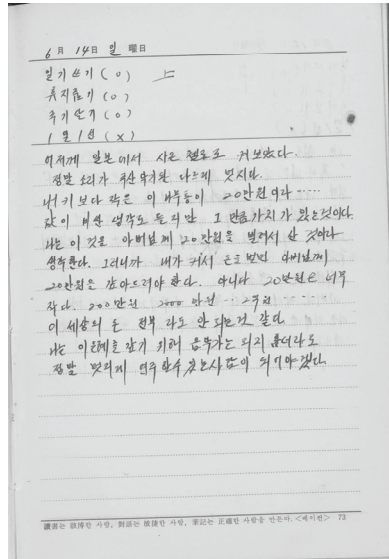 6月 14日 일 曜日
일기쓰기 (o) 上
휴지줍기 (o)
쓰기 (o)
1일 1선 (x)
어저께 일본에서 사온 첼로로 켜보았다.
정말 소리가 국산악기완 다르게 멋지다.
내 키보다 작은 이 나무통이 20만원이라 ‥‥‥
값이 비싼 생각도 들지만 그만큼 가치가 있는 것이다.
나는 이것을 아버님께 20만원을 빌려서 산 것이라
생각한다. 그러니까 내가 커서 돈을 벌면 아버님께
20만원을 갚아드려야 한다. 아니다 20만원은 너무
작다. 200만원 2000만원 ‥ 2억원 ‥‥‥
이 세상의 돈 전부라도 안 되는것 같다.
나는 이 은혜를 갚기 위해 음악가는 되지 못더라도
정말 멋지게 연주할수 있는 사람이 되어야겠다.
讀書는 該博한 사람, 對談는 敏捷한 사람, 筆記는 正確한 사람을 만든다.<베이컨> 73